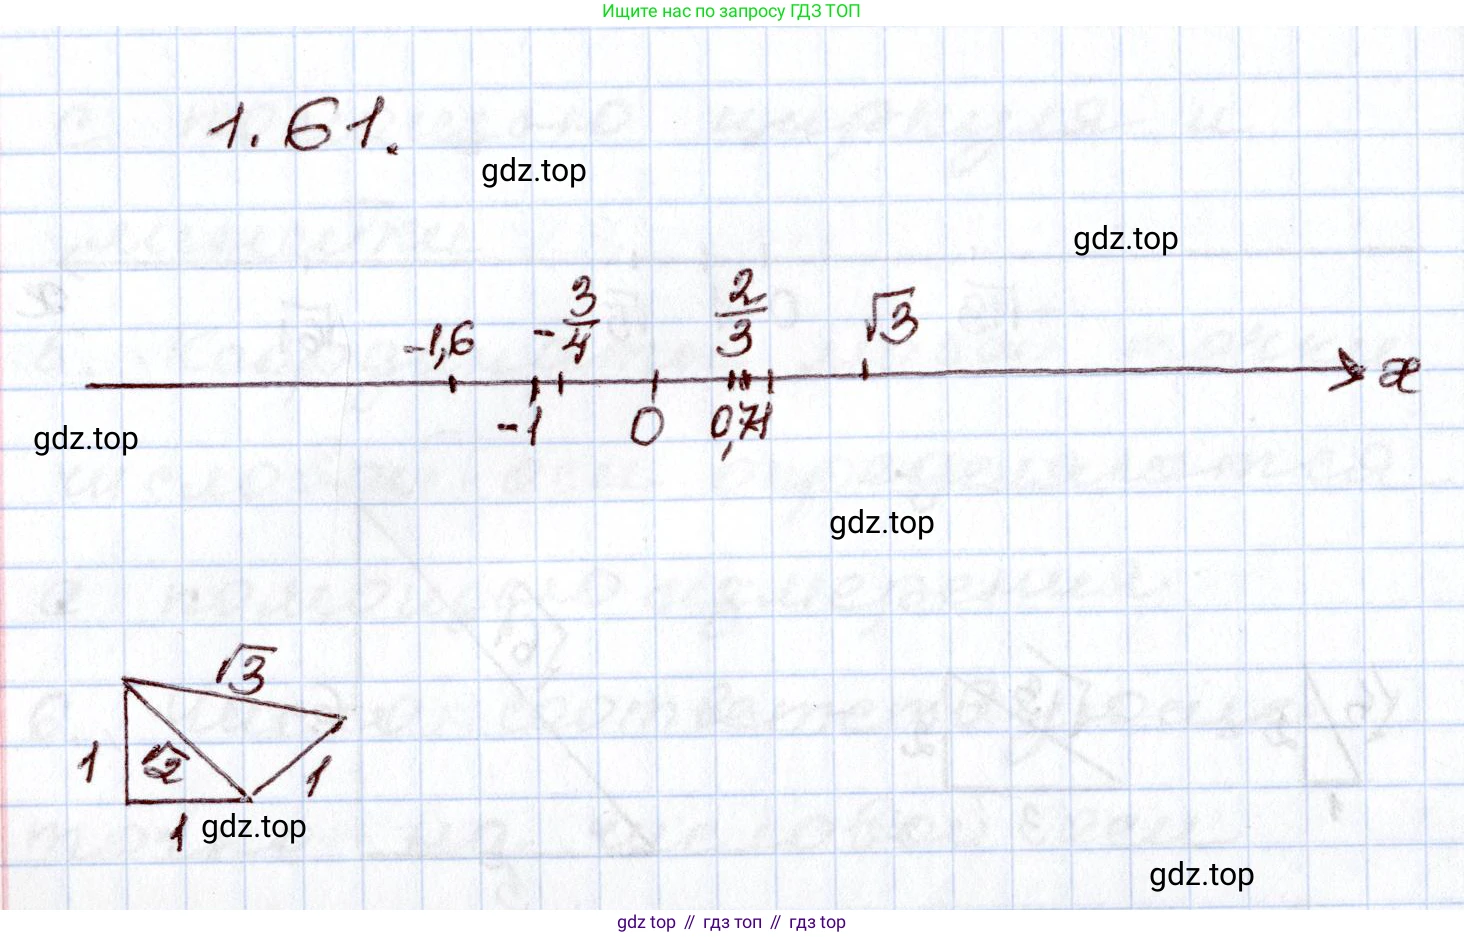 Ищите нас по запросу ГДЗ ТОП
1.61.
gdz.top
gdz.top
-1,6 -3/4 2/3 √3
x
-1 0 0,7 1
gdz.top
gdz.top
√3
1 √2 1
1 gdz.top
gdz.top
gdz top // гдз топ // гдз top